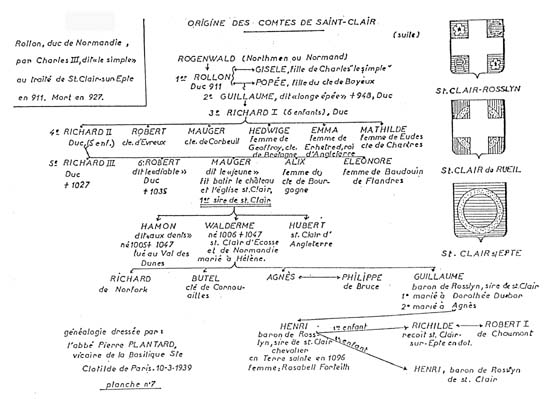 ORIGINE DES COMTES DE SAINT-CLAIR
(suite)
Rollon, duc de Normandie,
par Charles III, dit «le simple»
au traité de St.Clair-sur-Epte
en 911. Mort en 927.
ROGENWALD (Northmen ou Normand)
1er ROLLON
Duc 911
GISELE, fille de Charles "le simple"
POPÉE, fille du cte de Bayeux
2e GUILLAUME, dit «longe épée» + 948, Duc
3e RICHARD I (6 enfants), Duc
4e RICHARD II
Duc, (5 enf.)
ROBERT
cte. d'Evreux
MAUGER
cte. de Corbeuil
HEDWIGE
femme de
Geoffroy, cte.
de Bretagne
EMMA
femme de
Erhetred, roi
d'Angleterre
MATHILDE
femme de Eudes
cte de Chartres
5e RICHARD III
Duc
+ 1027
6e ROBERT
dit le «diable»
Duc
+ 1035
MAUGER
dit le «jeune»
fit batir le château
et l'église St.Clair,
1er sire de St.Clair
ALIX
femme du
cte de Bour-
gogne
ELEONORE
femme de Baudouin
de Flandres
HAMON
dit «aux dents»
né 1005 + 1047
tué au Val des
Dunes
WALDERME
né 1006 + 1047
St. Clair d'Ecosse
et de Normandie
marié à Hélène.
HUBERT
St. Clair d'
Angleterre
RICHARD
de Norfork
BUTEL
cte de Cornou-
ailles
AGNÈS
PHILIPPE
de Bruce
GUILLAUME
baron de Rosslyn, sire de St.Clair
1e marié à Dorothée Dunbar
2e marié à Agnès
HENRI
baron de Ross-
lyn, sire de St.Clair
chevalier
en Terre sainte en 1096
femme; Rosabell Forteith
1er enfant
enfant
RICHILDE
recoit St. Clair-
sur-Epte en dot.
ROBERT I
de Chaumont
HENRI, baron de Rosslyn
de St. Clair
généalogie dressée par:
l'abbé Pierre PLANTARD,
vicaire de la Basilique Ste
Clotilde de Paris. 10-3-1939
planche n°7
St. CLAIR-ROSSLYN
St. CLAIR du RUEIL
St. CLAIR s/EPTE